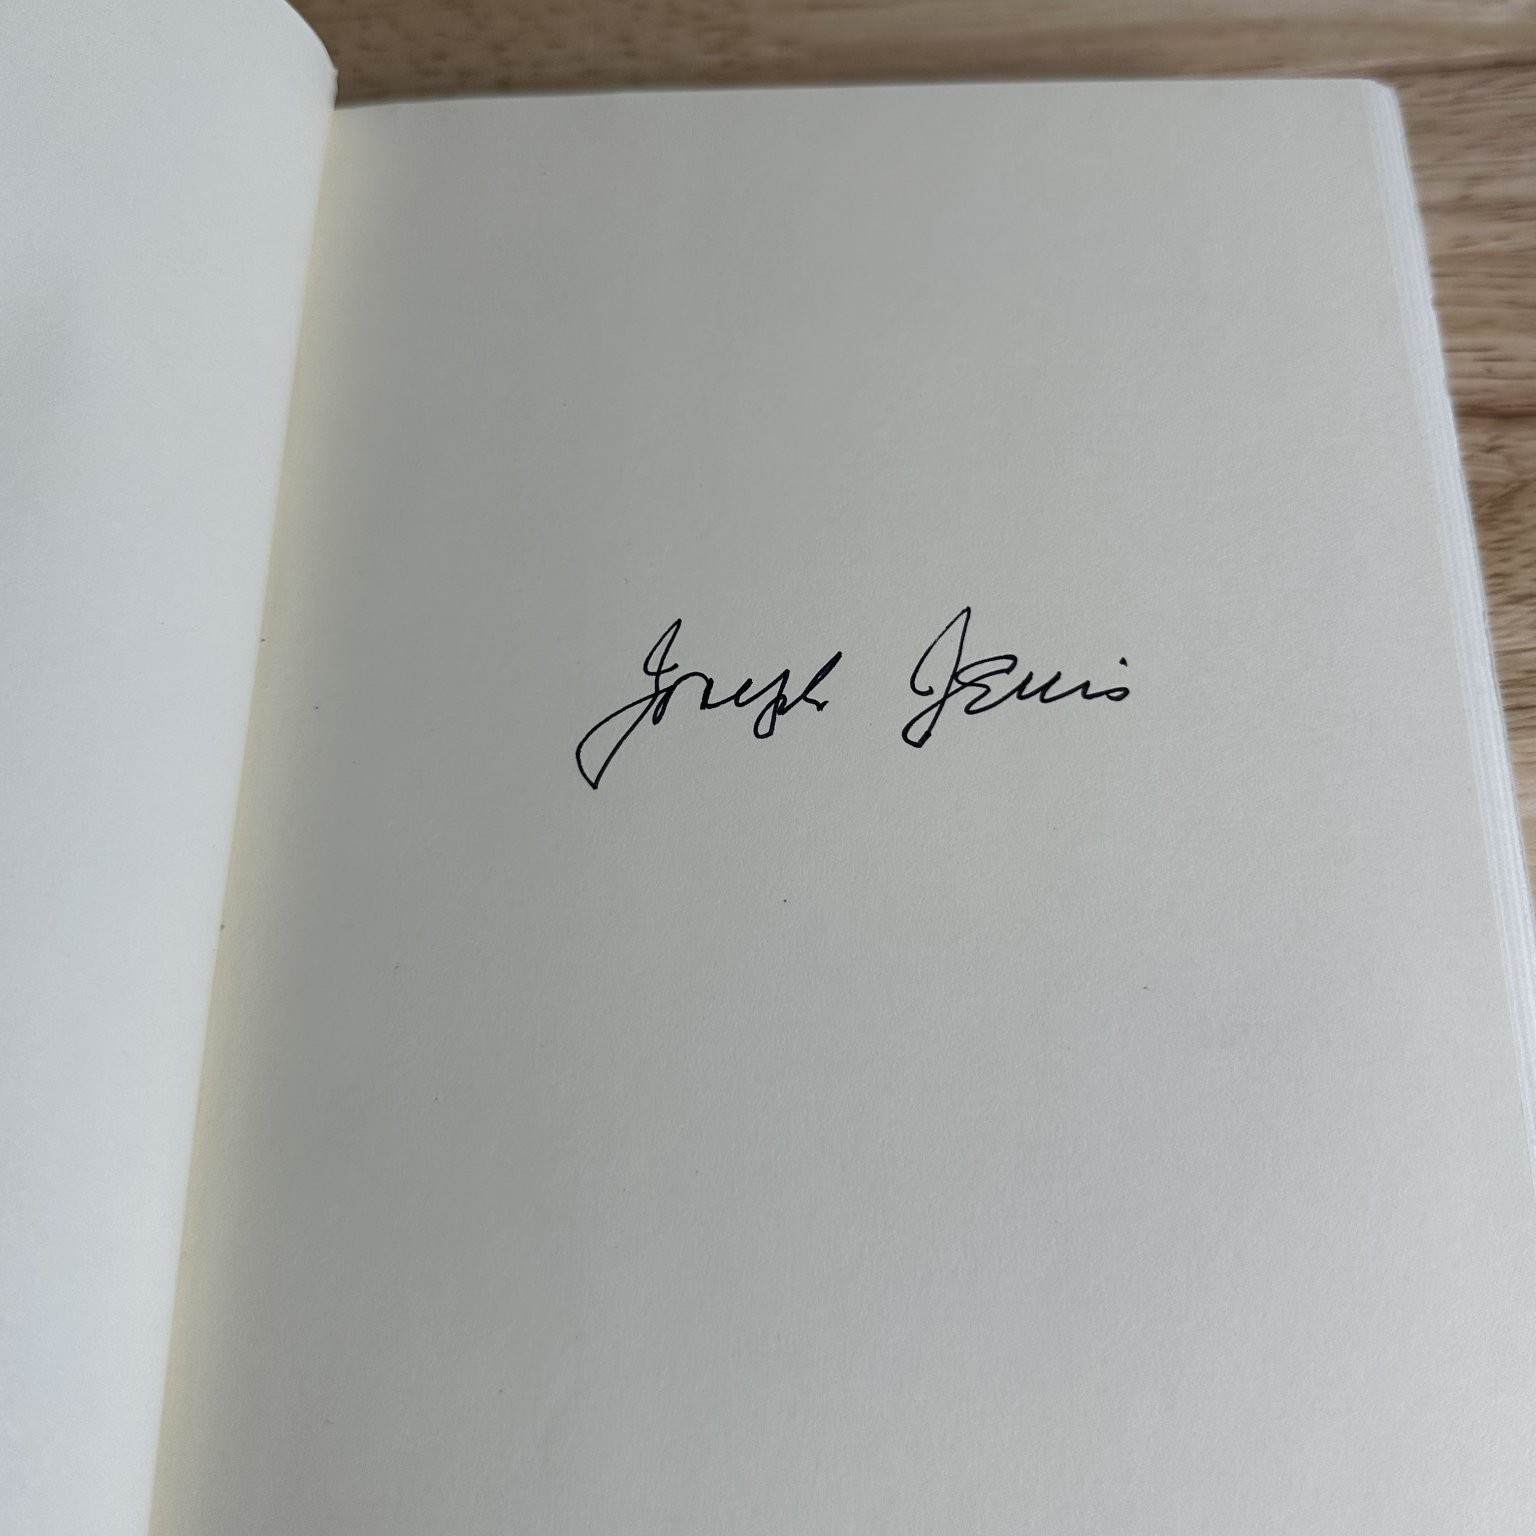 Joseph J Ellis